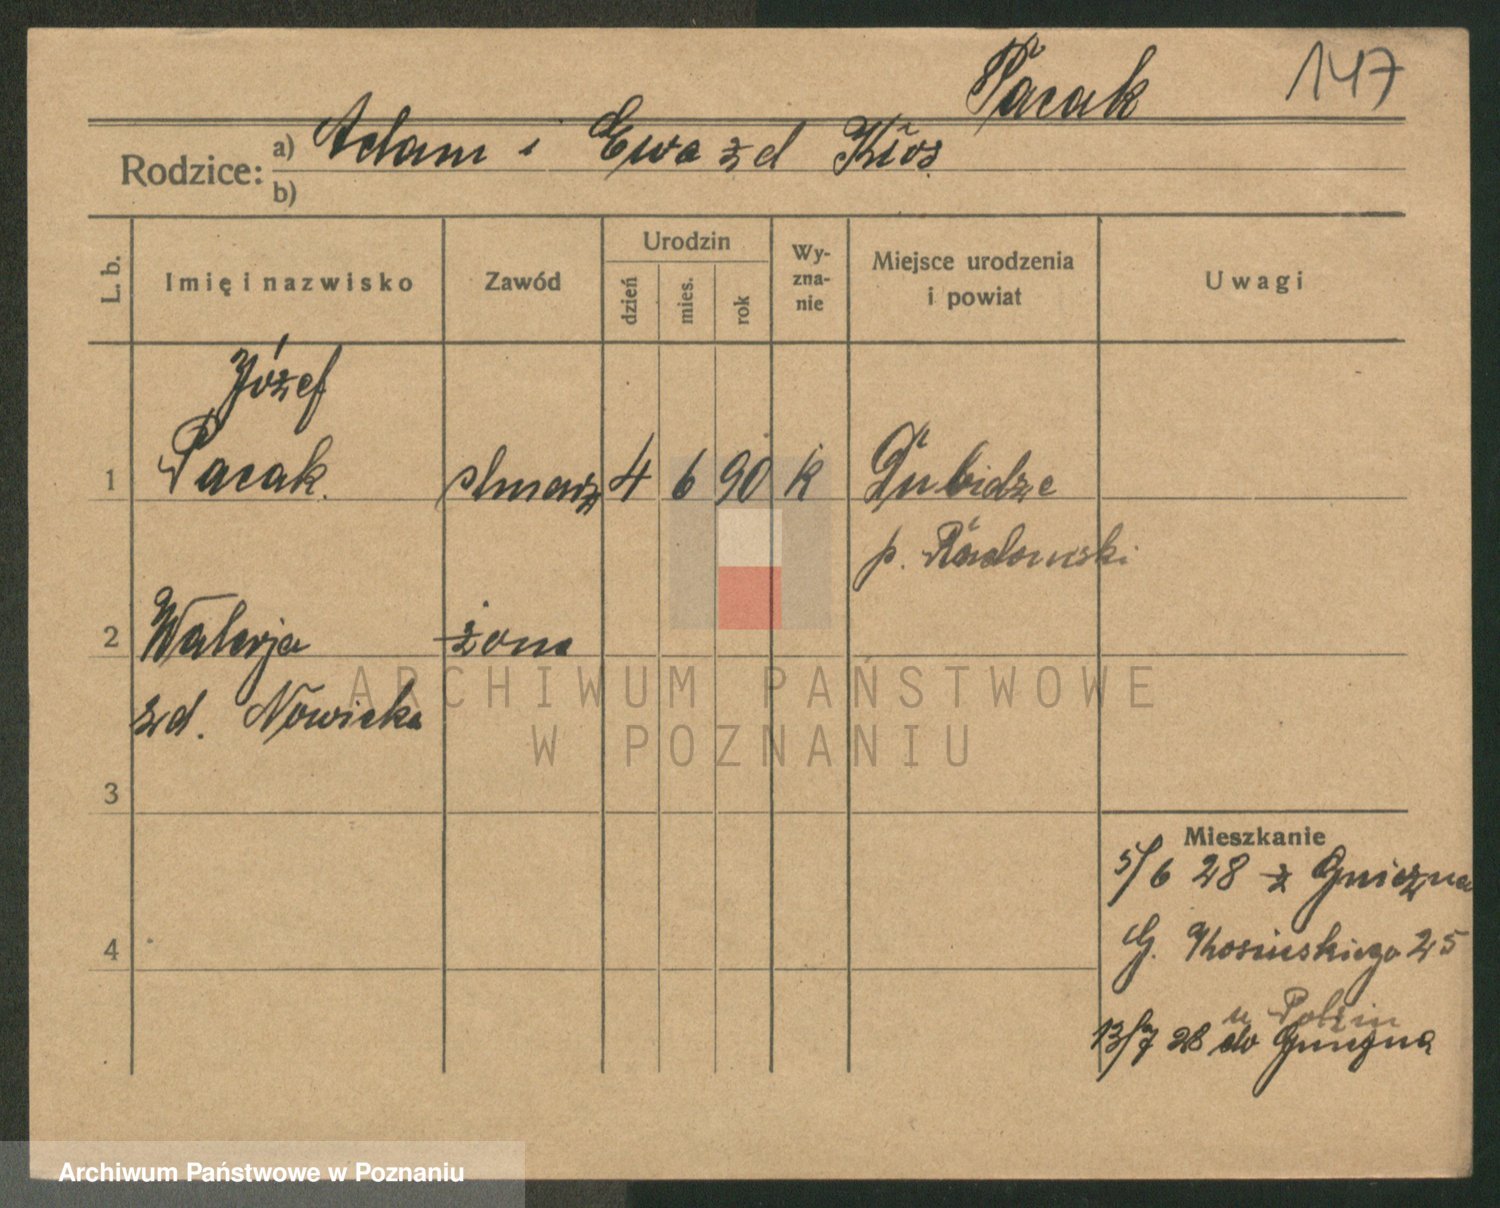 Pacak 147
Rodzice: a) Adam i Ewa zd Kłos
b)
L. b. Imię i nazwisko Zawód Urodzin dzień mies. rok Wy-zna-nie Miejsce urodzenia i powiat Uwagi
Józef
1 Pacak. 4 6 90 k Dubidze
p. Radomski
2 Walerja żona
zd. Nowicka
3
Mieszkanie
5/6 28 z Gniezna
4 G. Kosińskiego 25
u
13/7 28 do Gniezna
ARCHIWUM PAŃSTWOWE
W POZNANIU
Archiwum Państwowe w Poznaniu